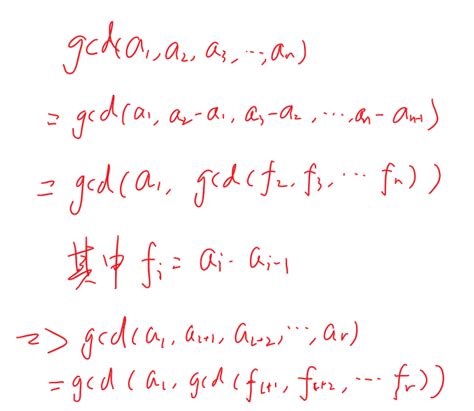 gcd(a₁, a₂, a₃, ⋯, aₙ)
= gcd(a₁, a₂-a₁, a₃-a₂, ⋯, aₙ-aₙ₋₁)
= gcd(a₁, gcd(f₂, f₃, ⋯ fₙ))
其中 fᵢ = aᵢ - aᵢ₋₁
=> gcd(aₗ, aₗ₊₁, aₗ₊₂, ⋯, aᵣ)
= gcd(aₗ, gcd(fₗ₊₁, fₗ₊₂, ⋯ fᵣ))